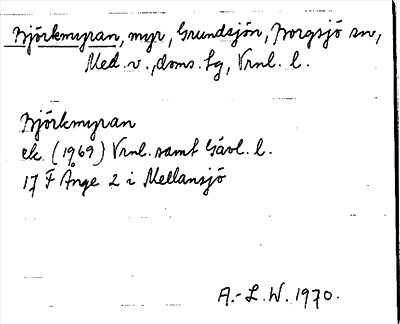 Björkmyran, myr, Grundsjön, Borgsjö sn,
Med. v., doms. lg, Vrnl. l.
Björkmyran
ek (1969) Vrnl. samt Gävl. l.
17 F Ånge 2 i Mellansjö
A.-L.W. 1970.